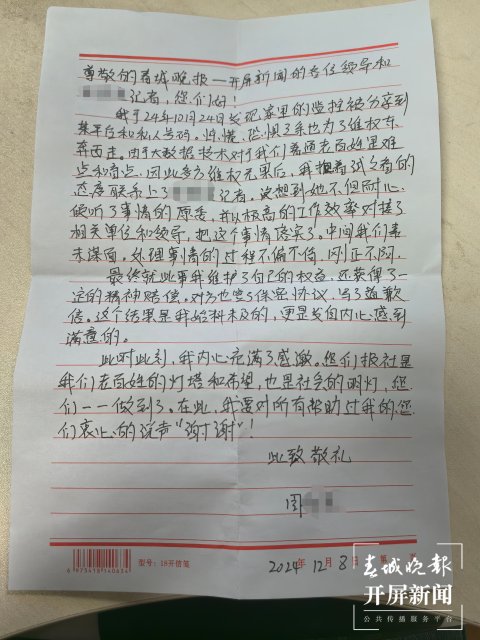 尊敬的春城晚报—开屏新闻的各位领导和
记者，您们好！
我于24年10月24日发现家里的监控被分享到
某平台和私人号码。惊慌、恐惧了系也为了维权东
奔西走。由于大数据技术对于我们普通老百姓是难
点和盲点，因此多方维权无果后，我抱着试之看的
态度联系上了 记者，没想到她不但耐心
倾听了事情的原委，并以极高的工作效率对接了
相关单位和领导，把这个事情落实了。中间我们素
未谋面。处理事情的过程不偏不倚，刚正不阿。
最终就此事我维护了自己的权益，还获得了一
定的精神赔偿，对方也签了保密协议，写了道歉
信。这个结果是我始料未及的，更是发自内心感到
满意的。
此时此刻，我内心充满了感激。您们报社是
我们老百姓的灯塔和希望，也是社会的明灯，您
们一一做到了。在此，我要对所有帮助过我的您
们衷心的说声“谢谢”！
此致敬礼
周
2024年12月8日 第 页
6973418140634
型号：18开信笺
春城晚报
开屏新闻
公共传播服务平台